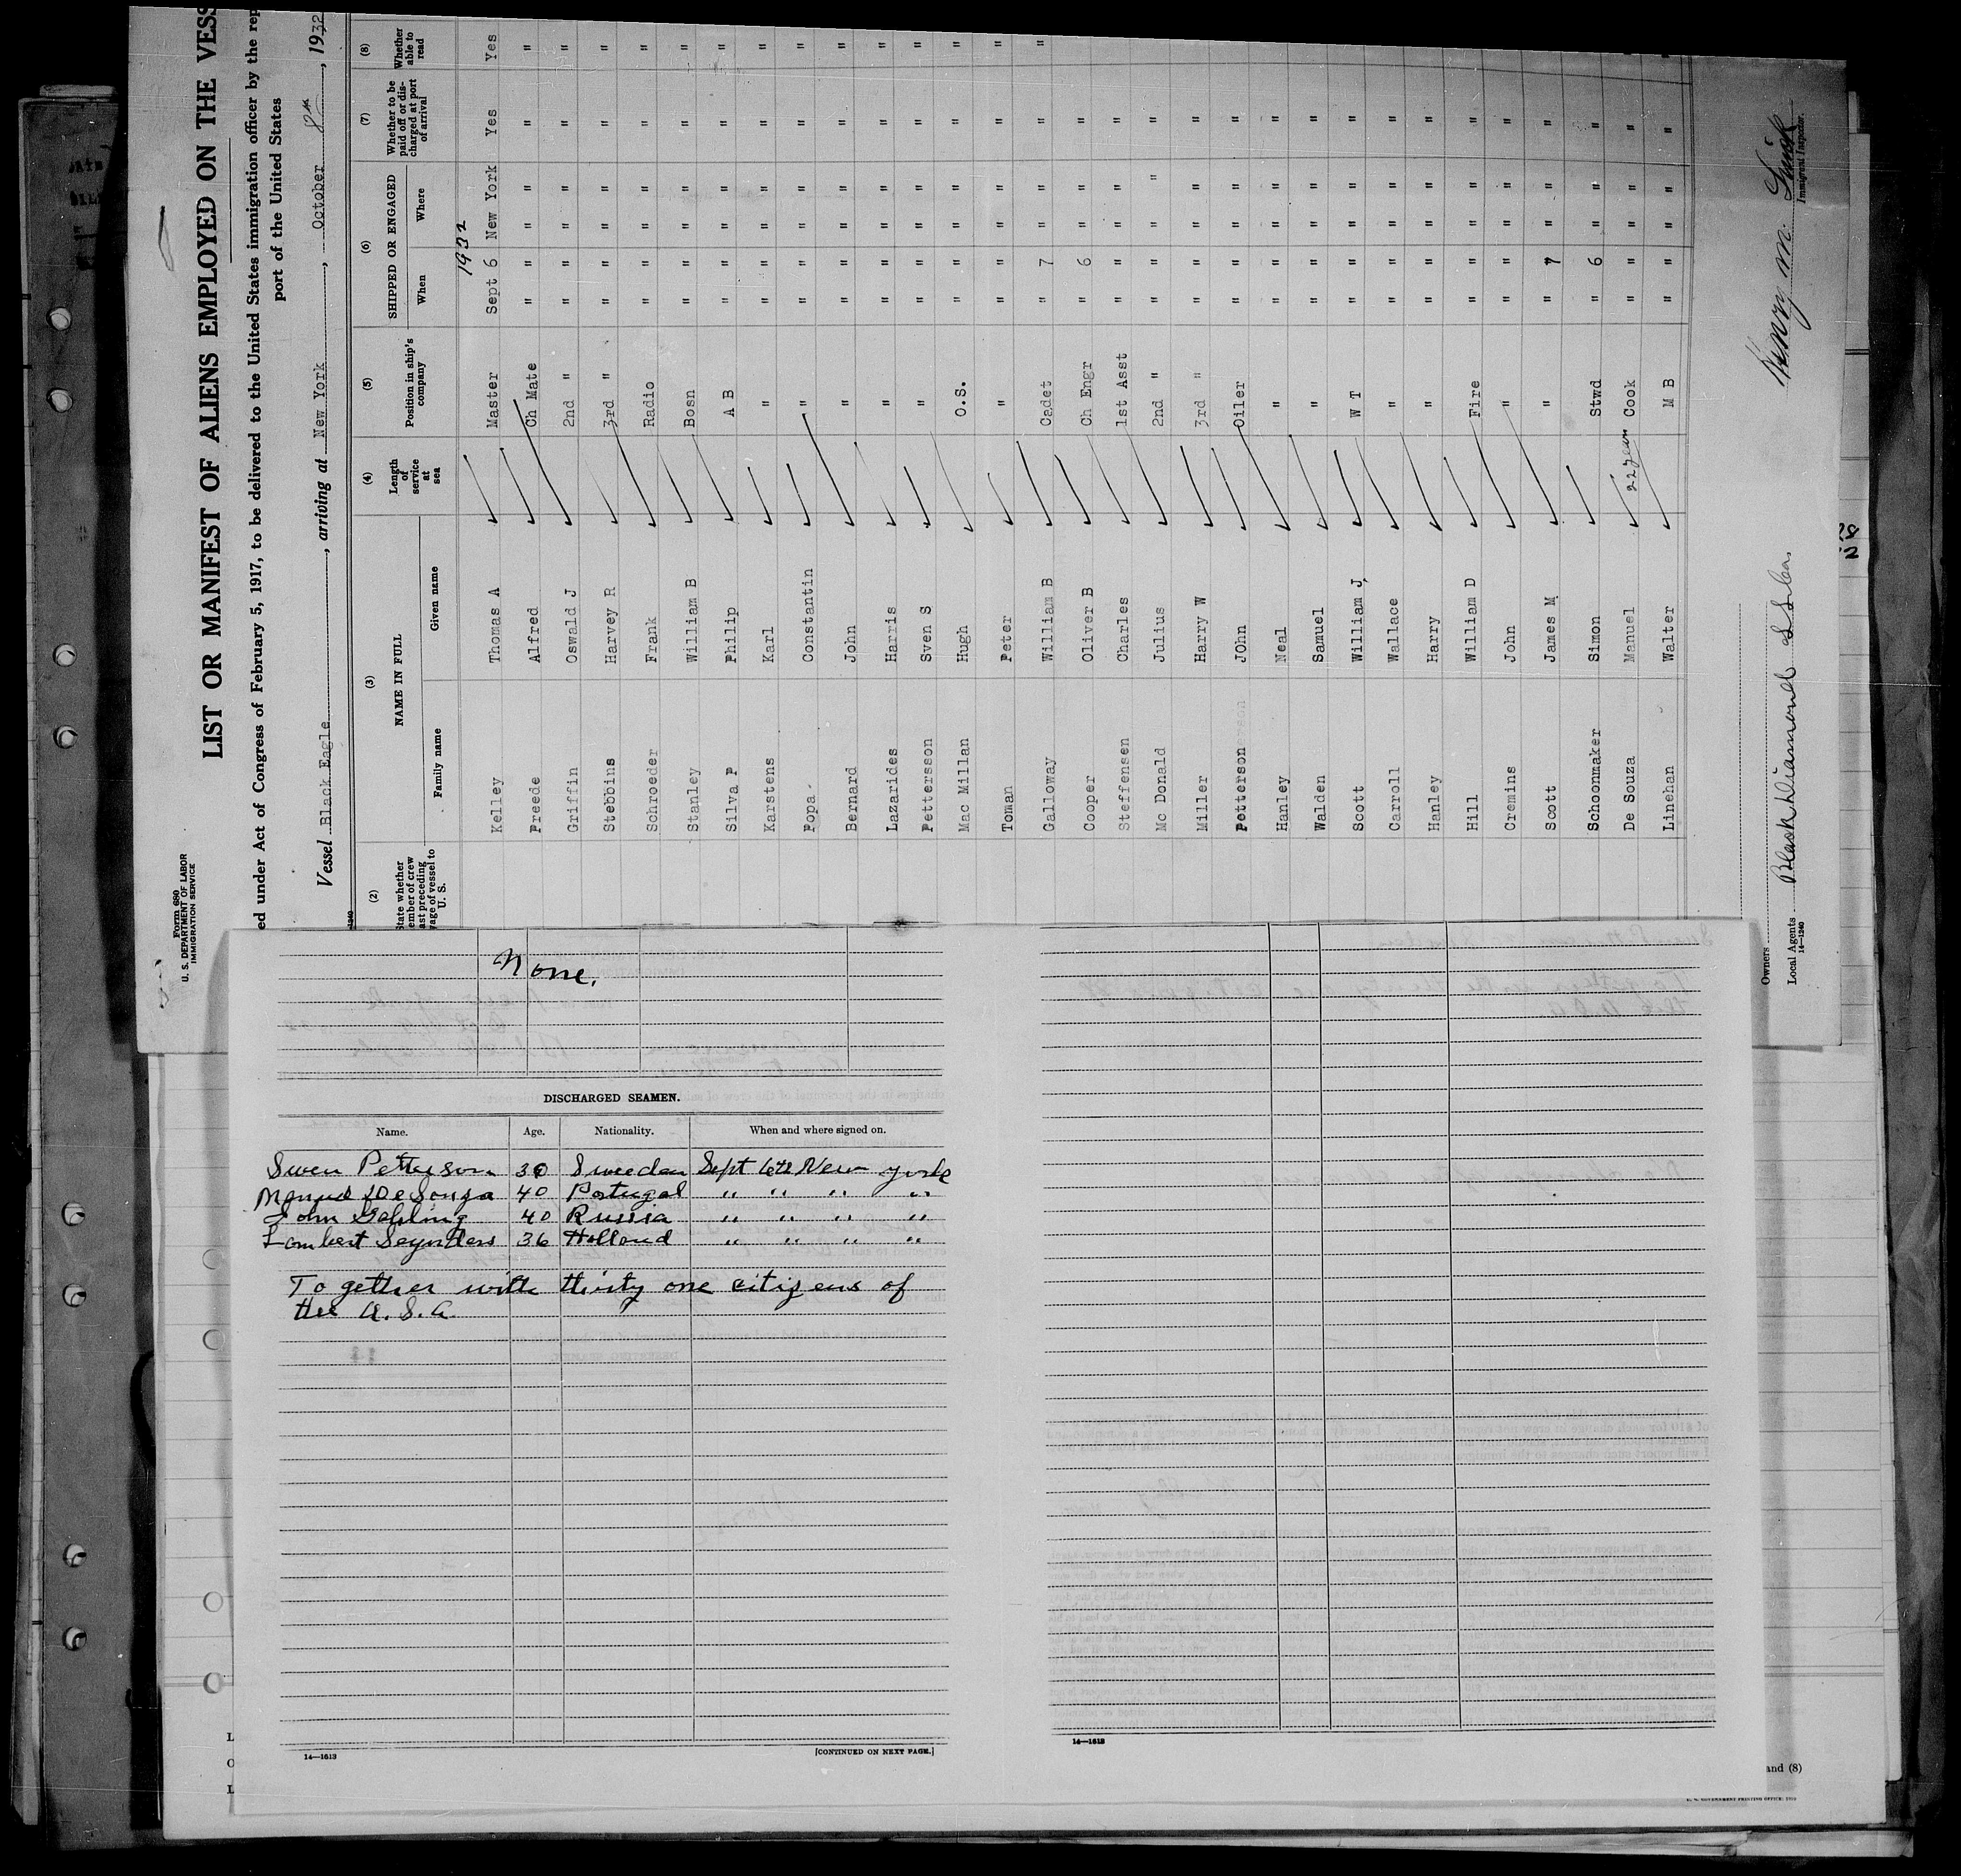 Form 680
U. S. DEPARTMENT OF LABOR
IMMIGRATION SERVICE
LIST OR MANIFEST OF ALIENS EMPLOYED ON THE VESS
ed under Act of Congress of February 5, 1917, to be delivered to the United States immigration officer by the rep
port of the United States
Vessel Black Eagle, arriving at New York, October 8th, 1932
(2) (3) (4) (5) (6) (7) (8)
State whether
ember of crew
ast preceding
yage of vessel to
U. S.
NAME IN FULL
Family name Given name
Length
of
service
at
sea
Position in ship's
company
SHIPPED OR ENGAGED
When Where
Whether to be
paid off or dis-
charged at port
of arrival
Whether
able to
read
1932
Kelley Thomas A Master Sept 6 New York Yes Yes
Preede Alfred Ch Mate " " " " " "
Griffin Oswald J 2nd " " " " " " "
Stebbins Harvey R 3rd " " " " " " "
Schroeder Frank Radio " " " " " "
Stanley William B Bosn " " " " " "
Silva P Philip A B " " " " " "
Karstens Karl " " " " " " "
Popa Constantin " " " " " " "
Bernard John " " " " " " "
Lazarides Harris " " " " " " "
Pettersson Sven S " " " " " " "
Mac Millan Hugh O.S. " " " " " "
Toman Peter " " " " " " "
Galloway William B Cadet " 7 " " " "
Cooper Oliver B Ch Engr " 6 " " "
Steffensen Charles 1st Asst " " " " "
Mc Donald Julius 2nd " " " " " "
Miller Harry W 3rd " " " " " "
Petterson JOhn Oiler " " " " "
Hanley Neal " " " " " "
Walden Samuel " " " " " "
Scott William J, W T " " " " "
Carroll Wallace " " " " " "
Hanley Harry " " " " " "
Hill William D Fire " " " " "
Cremins John " " " " " "
Scott James M " " 7 " " "
Schoonmaker Simon Stwd " 6 " " "
De Souza Manuel 22 years Cook " " " " "
Linehan Walter M B " " " " "
Owners
Local Agents Black Diamond S S Co.
14—1240
Henry M.
Immigrant Inspector.
None.
DISCHARGED SEAMEN.
Name. Age. Nationality. When and where signed on.
Swen Petterson 30 Sweeden Sept 6th New York
Manuel DeSouza 40 Portugal " " " "
John 40 Russia " " " "
Lambert Seynders 36 Holland " " " "
To gether with thirty one citizens of
the U.S.A.
14—1613
[CONTINUED ON NEXT PAGE.]
14—1613
and (8)
U. S. GOVERNMENT PRINTING OFFICE